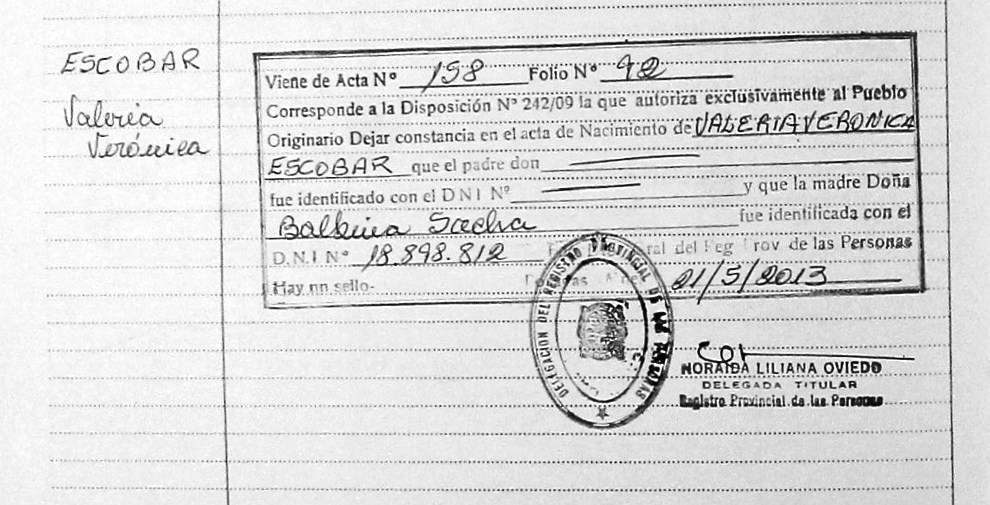 ESCOBAR
Valeria
Verónica
Viene de Acta Nº 158 Folio Nº 92
Corresponde a la Disposición Nº 242/09 la que autoriza exclusivamente al Pueblo
Originario Dejar constancia en el acta de Nacimiento de VALERIA VERONICA
ESCOBAR que el padre don
fue identificado con el DNI Nº y que la madre Doña
Balbina fue identificada con el
D.N.I Nº 18.898.812 ral del Reg Prov de las Personas
Hay un sello- as 21/5/2013
DELEGACION DEL REGISTRO PROVINCIAL DE LAS PERSONAS
NORAIDA LILIANA OVIEDO
DELEGADA TITULAR
Registro Provincial de las Personas